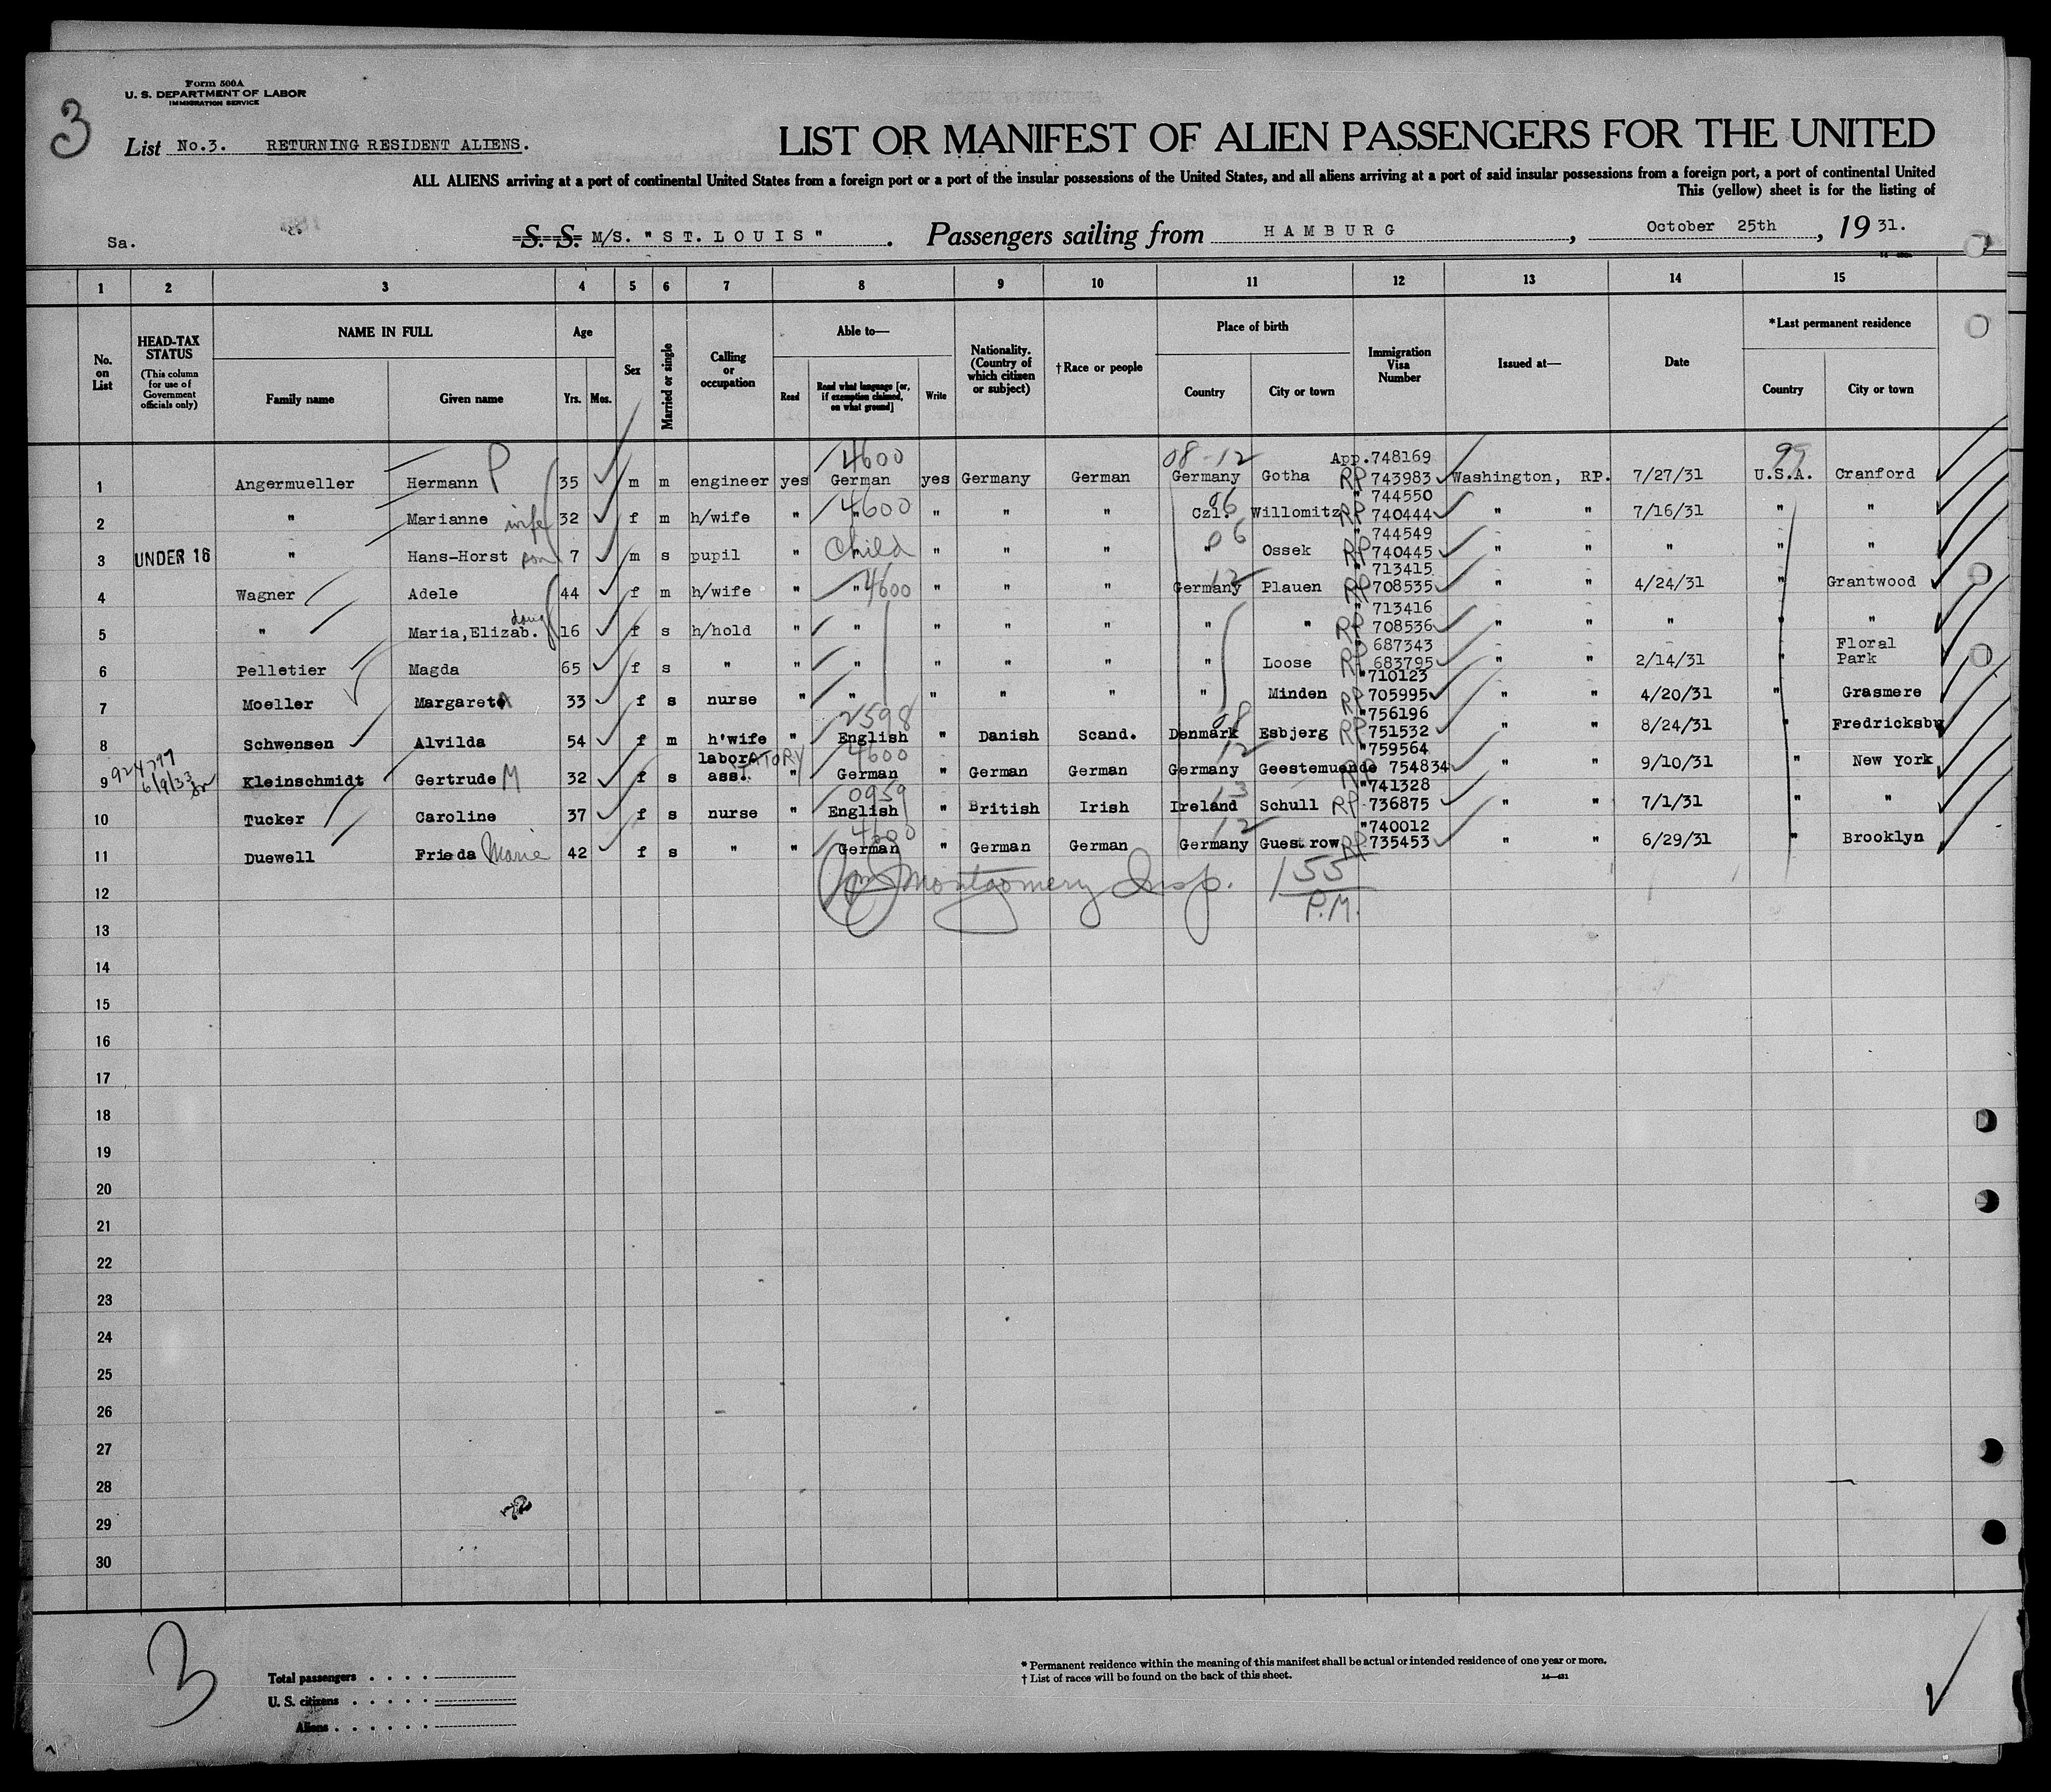 Form 500A
U. S. DEPARTMENT OF LABOR
IMMIGRATION SERVICE
3
List No.3. RETURNING RESIDENT ALIENS.
LIST OR MANIFEST OF ALIEN PASSENGERS FOR THE UNITED
ALL ALIENS arriving at a port of continental United States from a foreign port or a port of the insular possessions of the United States, and all aliens arriving at a port of said insular possessions from a foreign port, a port of continental United
This (yellow) sheet is for the listing of
Sa. S. S. M/S. "ST.LOUIS". Passengers sailing from HAMBURG, October 25th, 19 31.
1 2 3 4 5 6 7 8 9 10 11 12 13 14 15
No. on List
HEAD-TAX STATUS (This column for use of Government officials only)
NAME IN FULL
Family name Given name
Age
Yrs. Mos.
Sex
Married or single
Calling or occupation
Able to—
Read
Read what language [or, if exemption claimed, on what ground]
Write
Nationality. (Country of which citizen or subject)
†Race or people
Place of birth
Country City or town
Immigration Visa Number
Issued at—
Date
*Last permanent residence
Country City or town
4600 08-12 App.748169 99
1 Angermueller Hermann P 35 m m engineer yes German yes Germany German Germany Gotha RP 743983 Washington, RP. 7/27/31 U.S.A. Cranford
4600 06 " 744550
2 " Marianne wife 32 f m h/wife " " " " " Czl. Willomitz RP 740444 " " 7/16/31 " "
06 " 744549
3 UNDER 16 " Hans-Horst son 7 m s pupil " Child " " " " Ossek RP 740445 " " " " "
12 " 713415
4 Wagner Adele 44 f m h/wife " " 4600 " " " Germany Plauen RP 708535 " " 4/24/31 " Grantwood
daug " 713416
5 " Maria,Elizab. 16 f s h/hold " " " " " " " RP 708536 " " " " "
" 687343 Floral
6 Pelletier Magda 65 f s " " " " " " " Loose RP 683795 " " 2/14/31 " Park
"710123
7 Moeller Margareta 33 f s nurse " " " " " " Minden RP 705995 " " 4/20/31 " Grasmere
2598 08 "756196
8 Schwensen Alvilda 54 f m h'wife " English " Danish Scand. Denmark Esbjerg RP 751532 " " 8/24/31 " Fredricksbu
labora TATORY 4600 12 "759564
9 924797 6/9/33 Kleinschmidt Gertrude M 32 f s ass. " German " German German Germany Geestemuende 754834 " " 9/10/31 " New York
0959 13 "741328
10 Tucker Caroline 37 f s nurse " English " British Irish Ireland Schull RP 736875 " " 7/1/31 " "
4600 12 "740012
11 Duewell Frieda Marie 42 f s " " German " German German Germany Guestrow RP 735453 " " 6/29/31 " Brooklyn
Montgomery Insp. 1 55 P.M.
12
13
14
15
16
17
18
19
20
21
22
23
24
25
26
27
28
29
30
3
Total passengers . . . .
U. S. citizens . . . . .
Aliens . . . . . .
* Permanent residence within the meaning of this manifest shall be actual or intended residence of one year or more.
† List of races will be found on the back of this sheet.
14—421